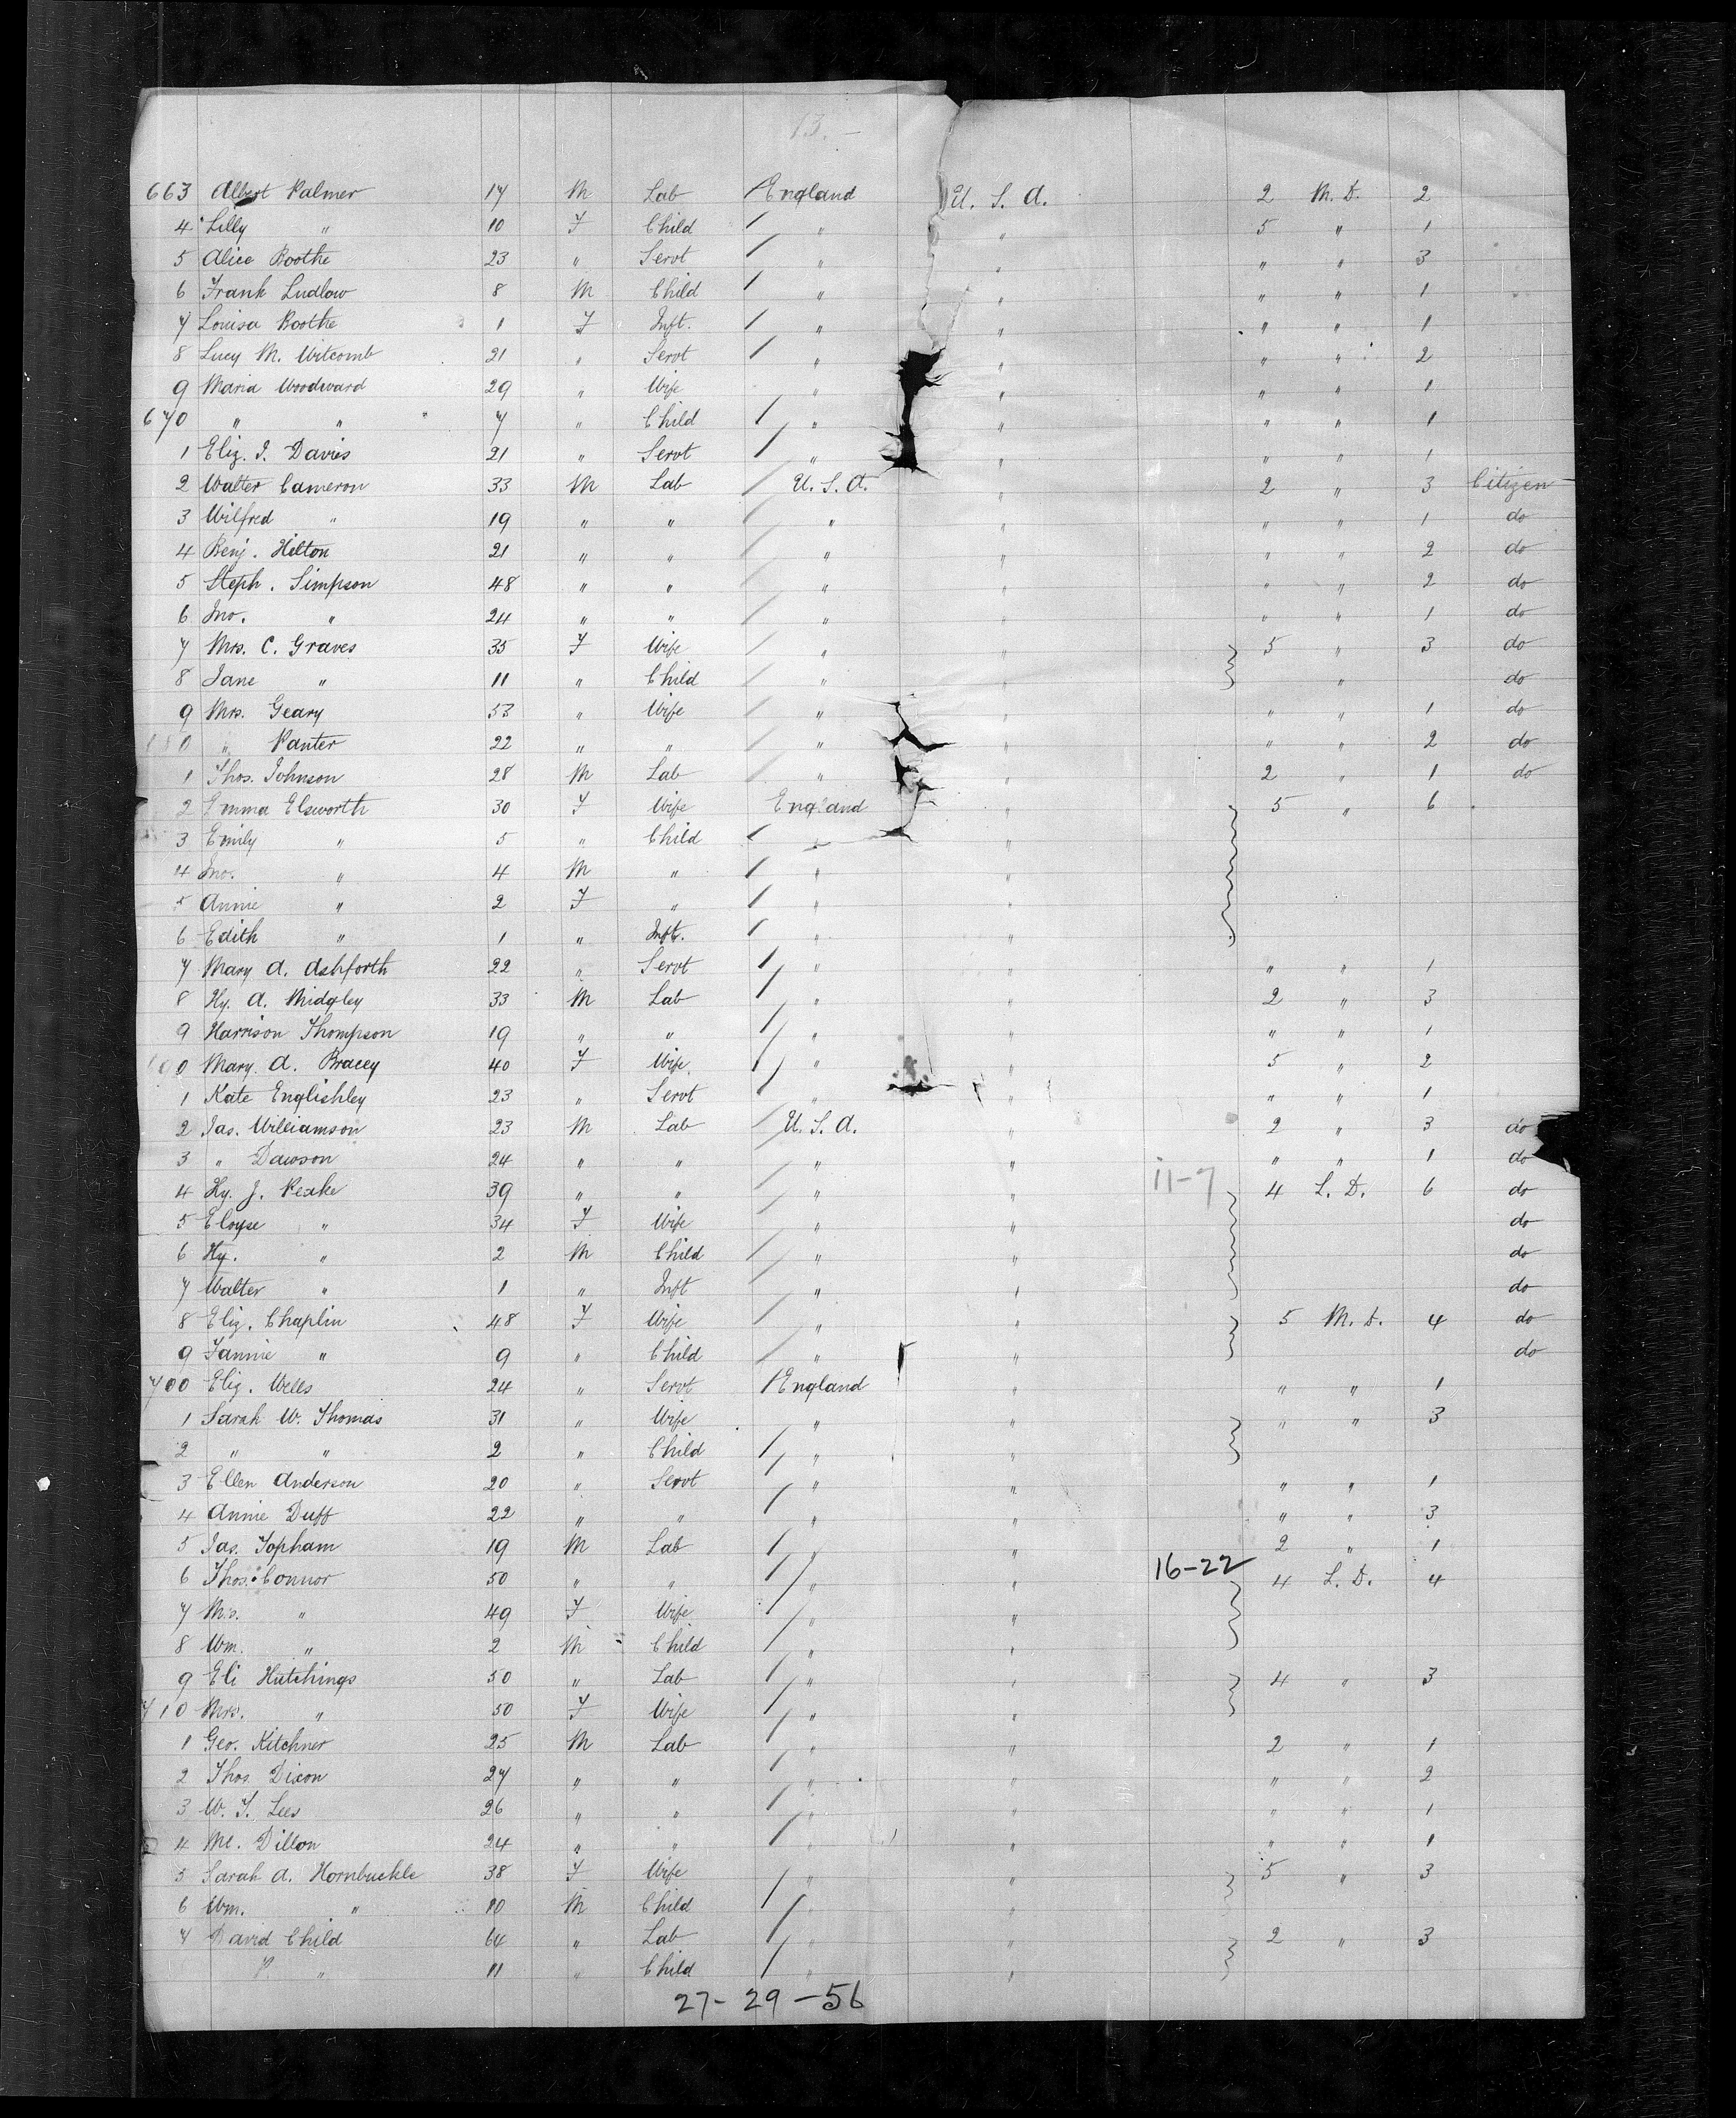 13. —
663 Albert Palmer 17 M Lab / England U. S. A. 2 M. D. 2
4 Lilly " 10 F Child / " " 5 " 1
5 Alice Boothe 23 " Servt / " " " " 3
6 Frank Ludlow 8 M Child / " " " " 1
7 Louisa Boothe 1 F Inft. / " " " " 1
8 Lucy M. Witcomb 21 " Servt / " " " " 2
9 Maria Woodward 29 " Wife " " " " 1
670 " " 7 " Child / " " " " 1
1 Eliz. J. Davies 21 " Servt / " " " " 1
2 Walter Cameron 33 M Lab / U. S. A. " 2 " 3 Citizen
3 Wilfred " 19 " " / " " " " 1 do
4 Benj. Hilton 21 " " / " " " " 2 do
5 Steph. Simpson 48 " " / " " " " 2 do
6 Jno. " 24 " " / " " " " 1 do
7 Mrs. C. Graves 35 F Wife / " " 5 " 3 do
8 Jane " 11 " Child / " " " do
9 Mrs. Geary 53 " Wife / " " " " 1 do
680 " Panter 22 " " / " " " " 2 do
1 Thos. Johnson 28 M Lab / " " 2 " 1 do
2 Emma Elsworth 30 F Wife England " 5 " 6
3 Emily " 5 " Child / " "
4 Jno. " 4 M " / " "
5 Annie " 2 F " / " "
6 Edith " 1 " Inft. / " "
7 Mary A. Ashforth 22 " Servt / " " " " 1
8 Hy. A. Midgley 33 M Lab / " " 2 " 3
9 Harrison Thompson 19 " " / " " " " 1
690 Mary A. Bracey 40 F Wife / " " 5 " 2
1 Kate Englishley 23 " Servt / " " " " 1
2 Jas. Williamson 23 M Lab / U. S. A. " 2 " 3 do
3 " Dawson 24 " " / " " " " 1 do
4 Hy. J. Peake 39 " " / " " 11-7 4 L. D. 6 do
5 Eloyse " 34 F Wife / " " do
6 Hy. " 2 M Child / " " do
7 Walter " 1 " Inft / " " do
8 Eliz. Chaplin 48 F Wife / " " 5 M. D. 4 do
9 Fannie " 9 " Child / " " do
700 Eliz. Wells 24 " Servt / England " " " 1
1 Sarah W. Thomas 31 " Wife " " " " 3
2 " " 2 " Child / " "
3 Ellen Anderson 20 " Servt / " " " " 1
4 Annie Duff 22 " " / " " " " 3
5 Jas. Topham 19 M Lab / " " 2 " 1
6 Thos. Connor 50 " " / " " 16-22 4 L. D. 4
7 Mrs. " 49 F Wife / " "
8 Wm. " 2 M Child / " "
9 Eli Hutchings 50 " Lab / " " 4 " 3
710 Mrs. " 50 F Wife / " "
1 Geo. Kitchner 25 M Lab / " " 2 " 1
2 Thos. Dixon 27 " " / " " " " 2
3 W. T. Lees 26 " " / " " " " 1
4 Ml. Dillon 24 " " / " " " " 1
5 Sarah A. Hornbuckle 38 F Wife / " " 5 " 3
6 Wm. " 10 M Child / " "
7 David Child 64 " Lab / " " 2 " 3
" 11 " Child / " "
27- 29 -56